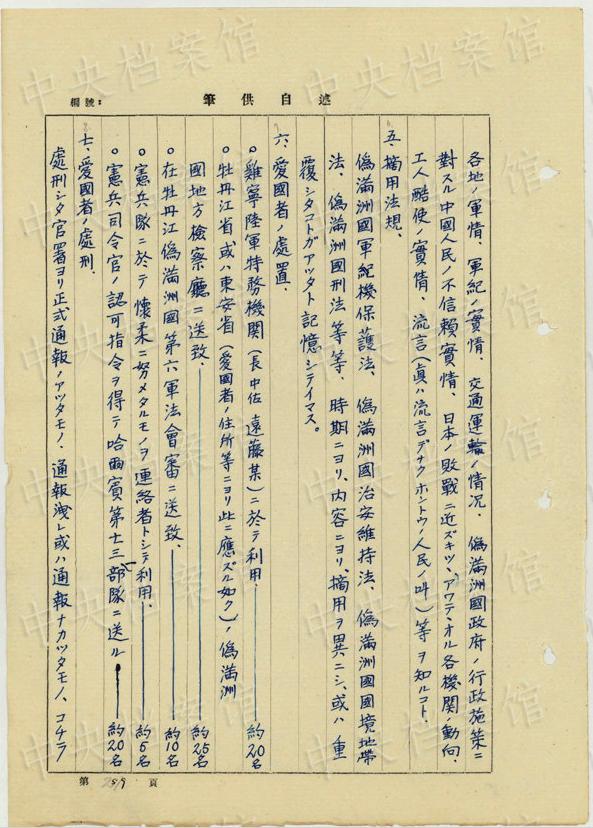 編號：
筆供自述
各地ノ軍情、軍紀ノ實情、交通運輸ノ情況、偽滿洲國政府ノ行政施策ニ
對スル中國人民ノ不信賴實情、日本ノ敗戰ニ近ズキツヽアワテヽオル各機関ノ動向、
工人酷使ノ實情、流言（眞ハ流言デナクホントウノ人民ノ叫）等ヲ知ルコト、
五、摘用法規、
偽滿洲國軍紀機保護法、偽滿洲國治安維持法、偽滿洲國國境地帶
法、偽滿洲國刑法等等、時期ニヨリ、内容ニヨリ、摘用ヲ異ニシ、或ハ重
覆シタコトガアツタト記憶シテイマス。
六、愛國者ノ處置、
○雞寧陸軍特務機関（長中佐 遠藤某）ニ於テ利用、——約20名
○牡丹江省或ハ東安省（愛國者ノ住所等ニヨリ此ニ應ズル如ク）ノ偽滿洲
國地方檢察廳ニ送致、——約25名
○在牡丹江偽滿洲國第六軍法會審ニ送致、——約10名
○憲兵隊ニ於テ懷柔ニ努メタルモノヲ連絡者トシテ利用、——約5名
○憲兵司令官ノ認可指令ヲ得テ哈爾賓第十三部隊ニ送ル——約20名
七、愛國者ノ處刑、
處刑シタ官署ヨリ正式通報ノアツタモノ、通報洩レ或ハ通報ナカツタモノ、コチラ
第 頁
中央档案馆